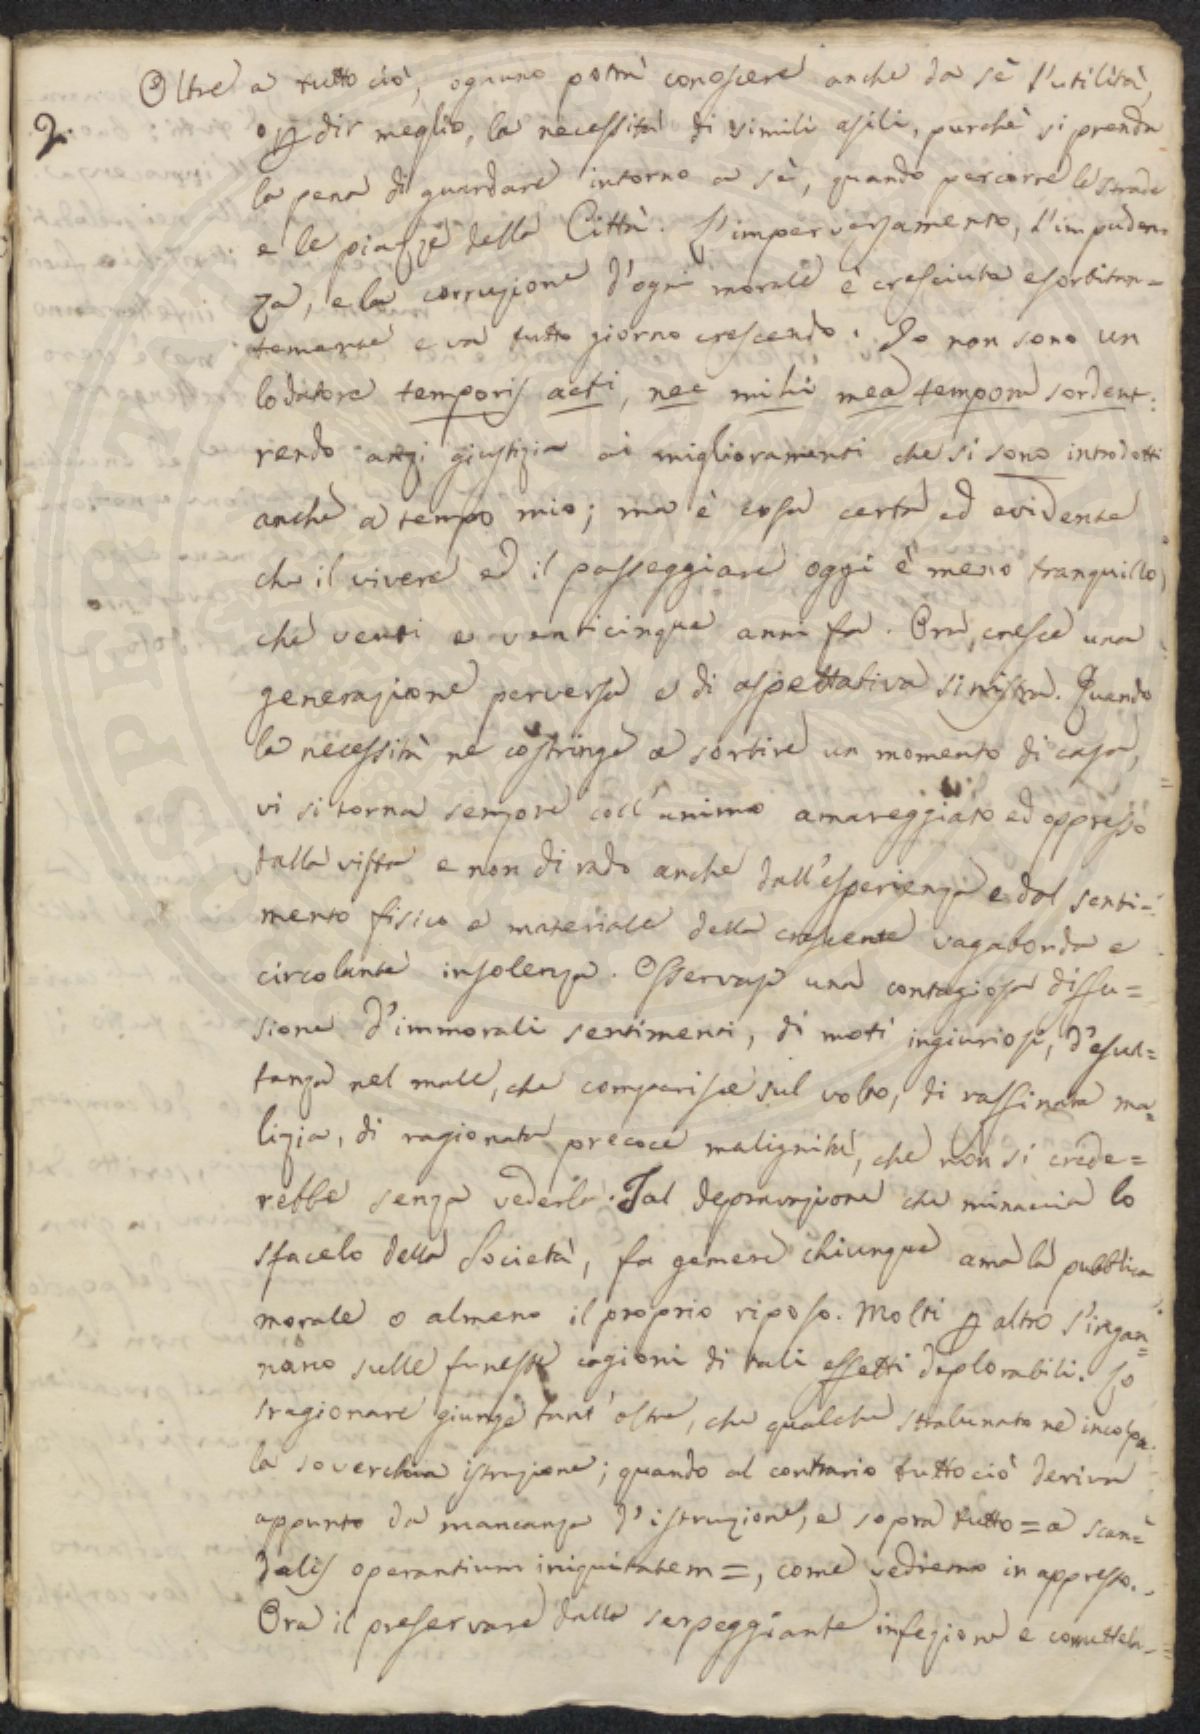 Oltre a tutto ciò, ognuno potrà conoscere anche da sè l'utilità,
2.
o p dir meglio, la necessità di simili asili, purchè si prenda
la pena di guardare intorno a sè, quando percorre le strade
e le piazze della Città. L'imperversamento, l'impuden=
za, e la corruzione d'ogni morale è cresciuta esorbitan=
temente e va tutto giorno crescendo. Io non sono un
lodatore temporis acti, nec mihi mea tempora sordent:
rendo anzi giustizia ai miglioramenti che si sono introdotti
anche a tempo mio; ma è cosa certa ed evidente
che il vivere ed il passeggiare oggi è meno tranquillo,
che venti e venticinque anni fa. Ora, cresce una
generazione perversa e di aspettativa sinistra. Quando
la necessità ne costringe a sortire un momento di casa,
vi si torna sempre coll'animo amareggiato ed oppresso
dalla vista e non di rado anche dall'esperienza e dal senti=
mento fisico e materiale della crescente vagabonda e
circolante insolenza. Osservasi una contagiosa diffu=
sione d'immorali sentimenti, di moti ingiuriosi, d'esul=
tanza nel male, che comparisce sul volto, di raffinata ma=
lizia, di ragionata precoce malignità, che non si crede=
rebbe senza vederla. Tal depravazione che minaccia lo
sfacelo della Società, fa gemere chiunque ama la pubblica
morale o almeno il proprio riposo. Molti p altro s'ingan=
nano sulle funeste cagioni di tali effetti deplorabili. Lo
sragionare giunge tant'oltre, che qualche stralunato ne incolpa
la soverchia istruzione; quando al contrario tutto ciò deriva
appunto da mancanza d'istruzione, e sopra tutto = a scan=
dalis operantium iniquitatem =, come vedremo in appresso.
Ora il preservare dalla serpeggiante infezione e corruttela